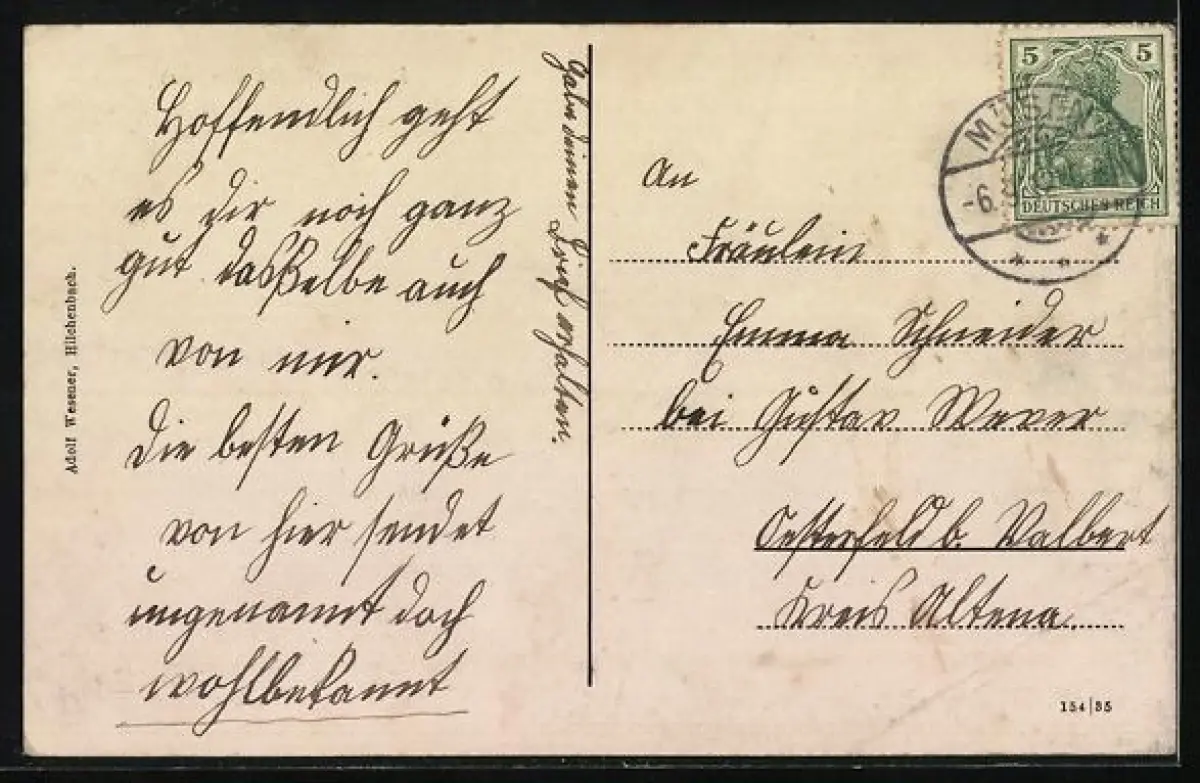 Hoffendlich geht
es dir noch ganz
gut dasselbe auch
von mir.
Die besten Grüße
von hier sendet
ungenannt doch
wohlbekannt
Habe deinen Brief erhalten.
Adolf Wesener, Hilchenbach.
5 5
DEUTSCHES REICH
MÜSEN
-6.
An
Fräulein
Emma Schneider
bei Gustav Wever
Oesterfeld b. Valbert
Kreis Altena.
154|35